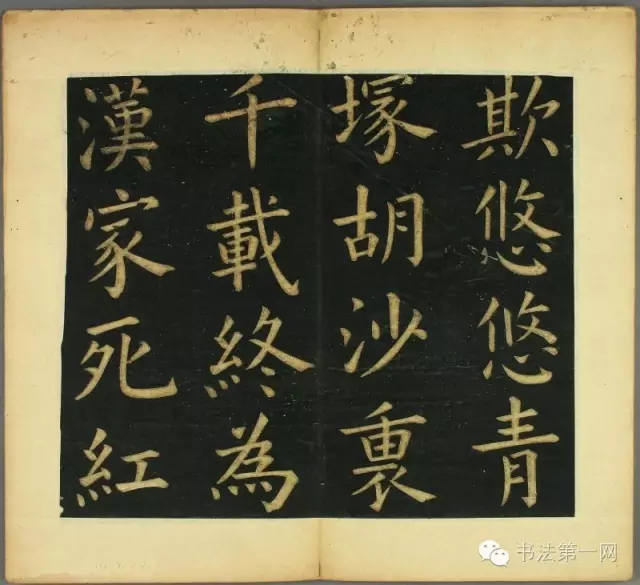 欺悠悠青
塚胡沙裏
千載終為
漢家死紅
书法第一网